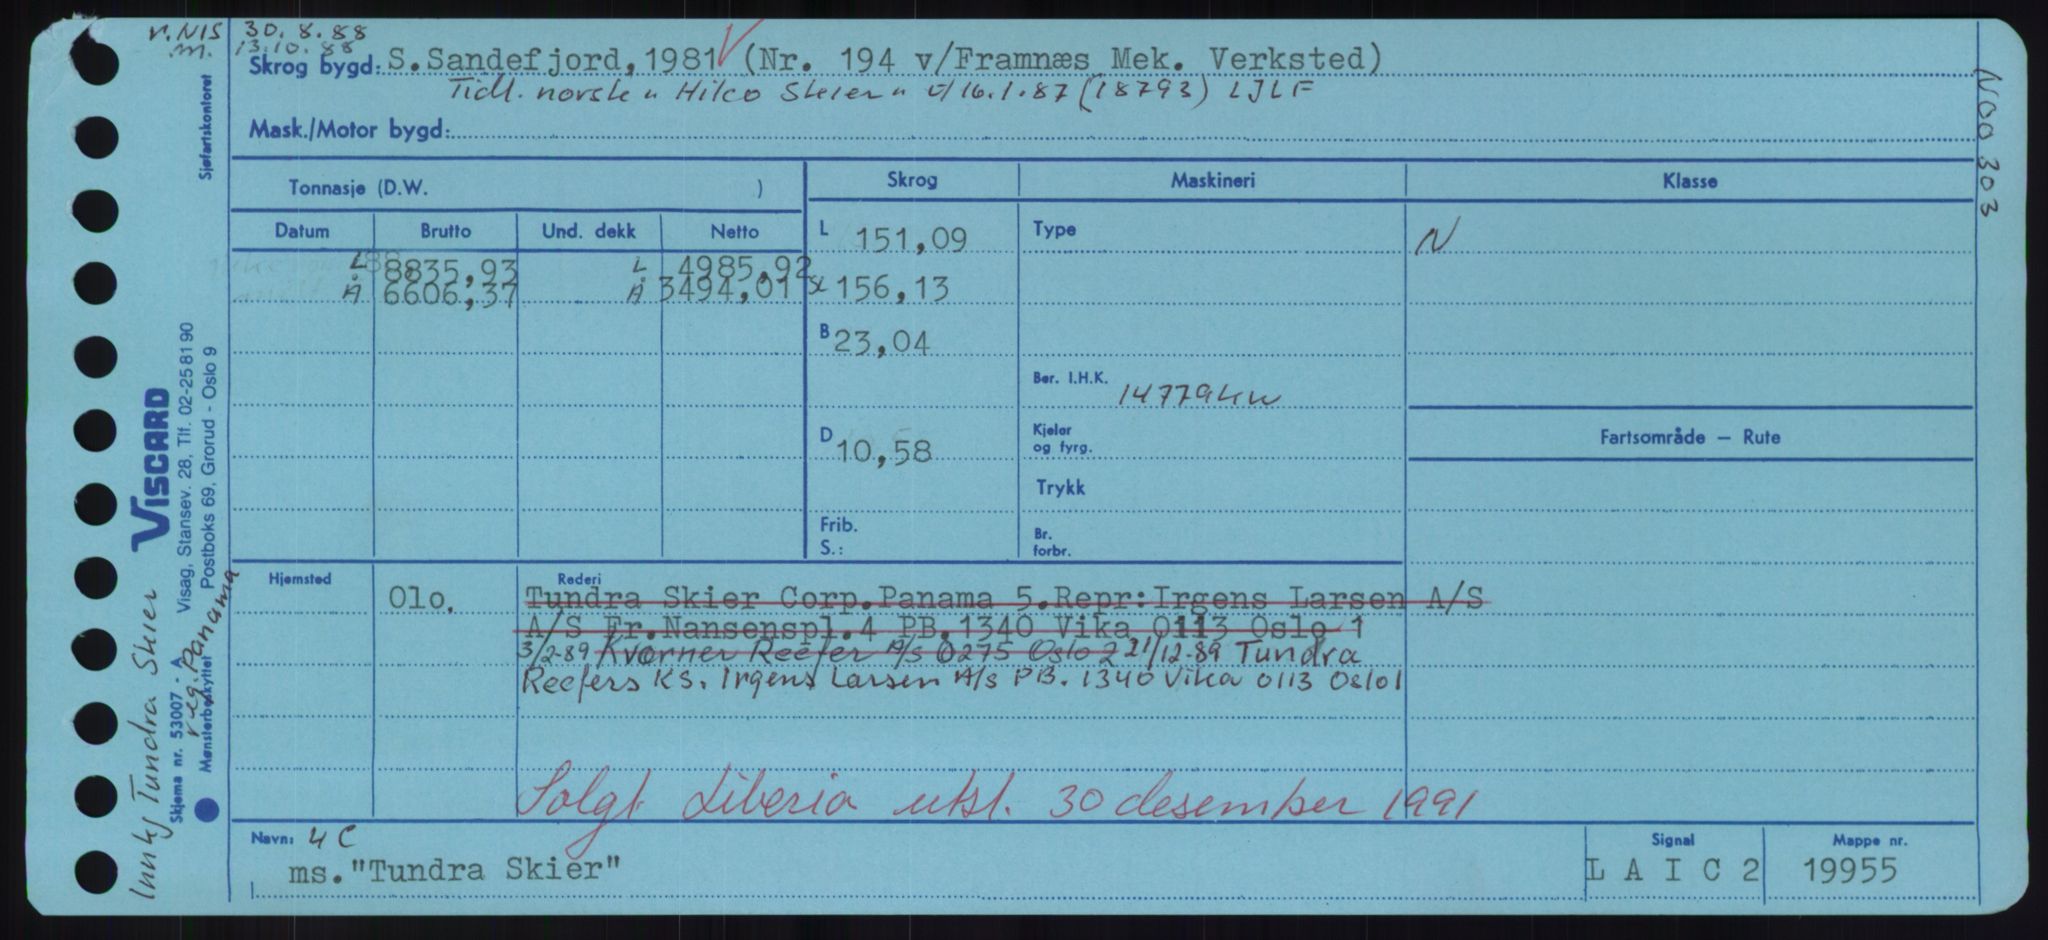 r.NIS 30.8.88
m. 13.10.88
Skrog bygd: S.Sandefjord, 1981 V (Nr. 194 v/Framnæs Mek. Verksted)
Tidl. norske "Hilco Skier" u/16.1.87 (18793) LJLF
Mask./Motor bygd:
N00303
Sjøfartskontoret
Tonnasje (D.W. )
Skrog Maskineri Klasse
Datum Brutto Und. dekk Netto
L 151,09 Type N
L 8835,93 L 4985,92
Å 6606,37 Å 3494,01 SL 156,13
B 23,04
Ber. I.H.K. 14779 kw
D 10,58 Kjeler og fyrg.
Fartsområde — Rute
Trykk
Frib. S.: Br. forbr.
Hjemsted Olo. Rederi
Tundra Skier Corp.Panama 5.Repr:Irgens Larsen A/S
A/S Fr.Nansenspl.4 PB.1340 Vika 0113 Oslo 1
3/2-89 Kværner Reefer A/S 0275 Oslo 2 21/12-89 Tundra
Reefers KS. Irgens Larsen A/S PB. 1340 Vika 0113 Oslo 1
Solgt Liberia utst. 30 desember 1991
Navn: 4 C
ms."Tundra Skier"
Signal
L A I C 2
Mappe nr.
19955
VISCARD
Visag, Stansev. 28, Tlf. 02-25 81 90
Postboks 69, Grorud - Oslo 9
Skjema nr. 53007 - A
Mønsterbeskyttet
reg. Panama
Innkj Tundra Skier